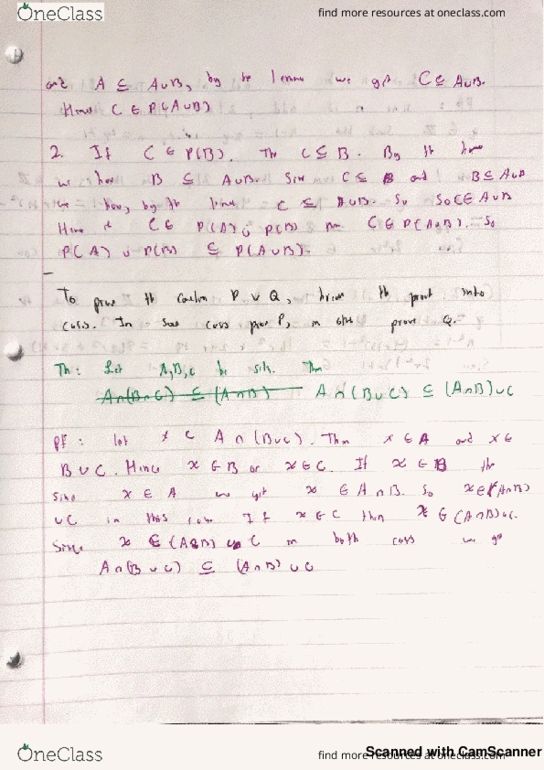 OneClass
find more resources at oneclass.com
and A ⊆ A∪B, by the lemma we get C ⊆ A∪B.
Hence C ∈ P(A∪B)
2. If C ∈ P(B). Then C ⊆ B. By the
we have B ⊆ A∪B. Since C ⊆ B and B ⊆ A∪B
we have, by the lemma C ⊆ A∪B. So C ∈ A∪B
Hence if C ∈ P(A) ∪ P(B) then C ∈ P(A∪B). So
P(A) ∪ P(B) ⊆ P(A∪B).
To prove the P ∨ Q, the proof into
cases. In some cases prove P, in other prove Q.
Th: Let A,B,C be sets. Then
A∩(B∪C) ⊆ (A∩B) A∩(B∪C) ⊆ (A∩B)∪C
Pf: let x ∈ A∩(B∪C). Then x ∈ A and x ∈
B∪C. Hence x ∈ B or x ∈ C. If x ∈ B the
since x ∈ A we get x ∈ A∩B. So x ∈ (A∩B)
∪C in this case If x ∈ C then x ∈ (A∩B)∪C.
Since x ∈ (A∩B) ∪ C in both cases we get
A∩(B∪C) ⊆ (A∩B)∪C
OneClass
find more resources at oneclass.com
Scanned with CamScanner